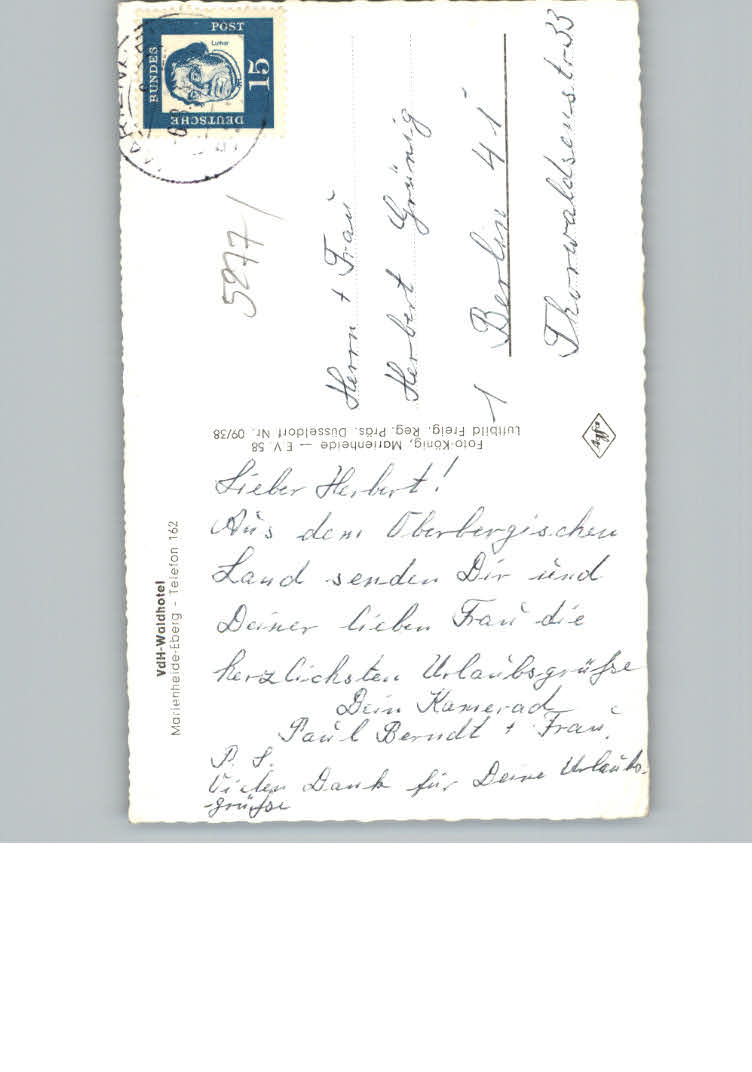 Lieber Herbert!
Aus dem Oberbergischen
Land senden Dir und
Deiner lieben Frau die
herzlichsten Urlaubsgrüße
Dein Kamerad
Paul Berndt + Frau.
P. S.
Vielen Dank für Deine Urlaubs-
-grüße
VdH-Waldhotel
Marienheide-Eberg - Telefon 162
Foto-König, Marienheide — E V. 58
Luftbild Freig. Reg. Präs. Düsseldorf Nr. 09/38
Agfa
DEUTSCHE
BUNDES
POST
15
Luther
5277/
Herrn + Frau
Herbert Grünig
1 Berlin 41
Thorwaldsenstr. 33